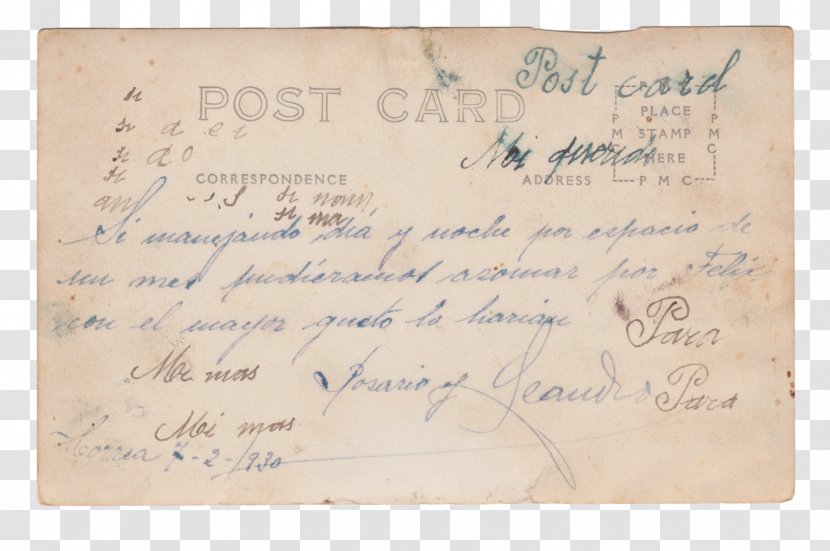 Post card
POST CARD
PLACE
STAMP
HERE
P M C
P M C
P M C
Mi querido
CORRESPONDENCE
ADDRESS
Si manejando dia y noche por espacio de
un mes pudieramos asomar por Felix
con el mayor gusto lo harian
Para
Mi mas
Rosario y Leandro
Para
Mi mas
7-2-930